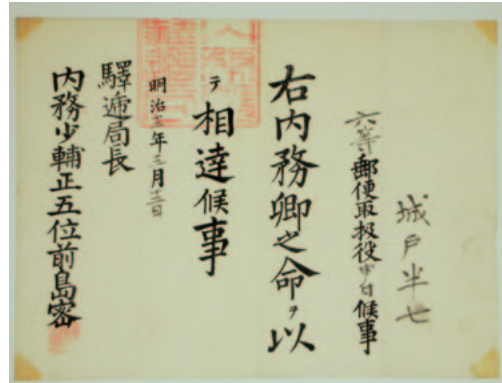 城戸半七
六等郵便取扱役申付候事
右内務卿之命ヲ以
テ相達候事
明治年三月
驛逓局長
内務少輔正五位前島密